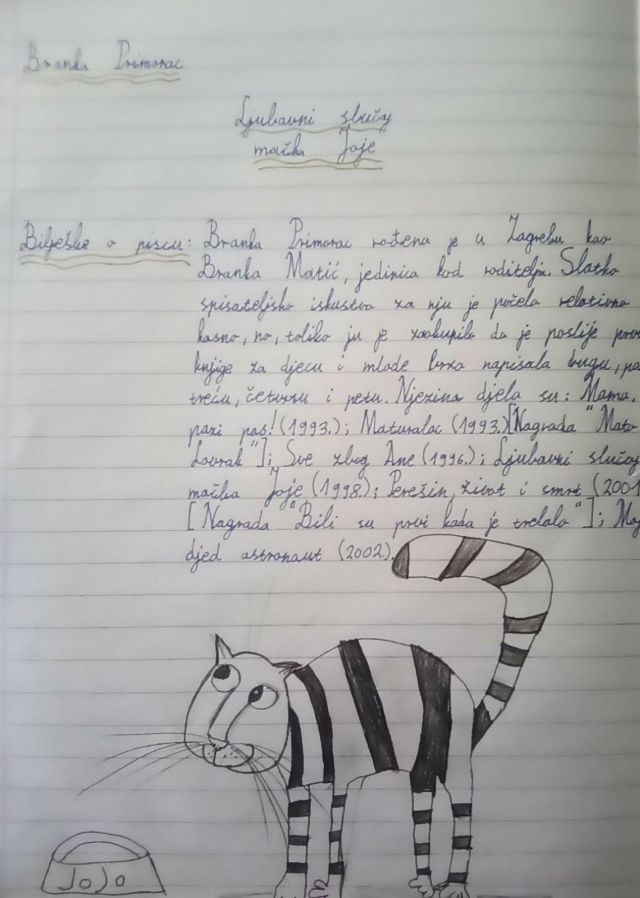 Branka Primorac
Ljubavni slučaj
mačka Joje
Bilješke o piscu: Branka Primorac rođena je u Zagrebu kao
Branka Matić, jedinica kod roditelja. Slatko
spisateljsko iskustvo za nju je počelo relativno
kasno, no, toliko ju je zaokupilo da je poslije prve
knjige za djecu i mlade brzo napisala drugu, pa
treću, četvrtu i petu. Njezina djela su: Mama,
pazi pas! (1993.); Maturalac (1993.)[Nagrada "Mato
Lovrak"]; Sve zbog Ane (1996.); Ljubavni slučaj
mačka Joje (1998.); Perešin, život i smrt (2001
[Nagrada "Bili su prvi kada je trebalo"]; Moj
djed astronaut (2002).
JoJo